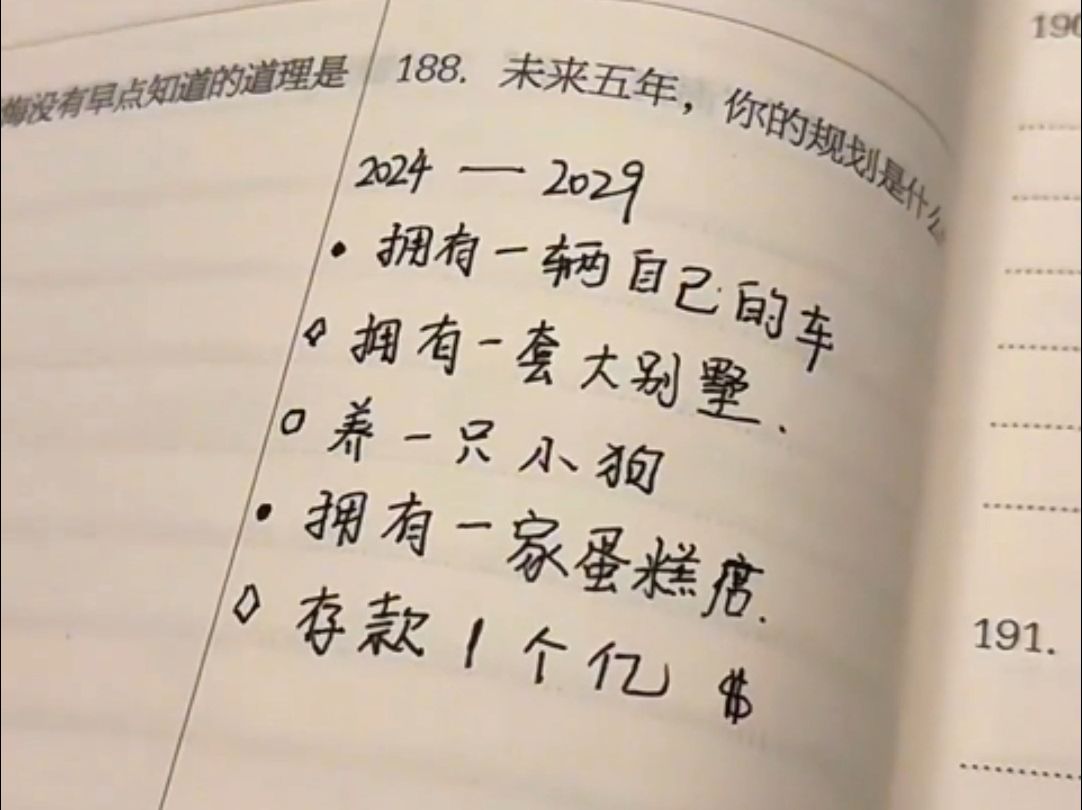 悔没有早点知道的道理是
188. 未来五年，你的规划是什么
2024 — 2029
• 拥有一辆自己的车
◇ 拥有一套大别墅.
○ 养一只小狗
• 拥有一家蛋糕店.
◇ 存款1个亿 $
190
191.